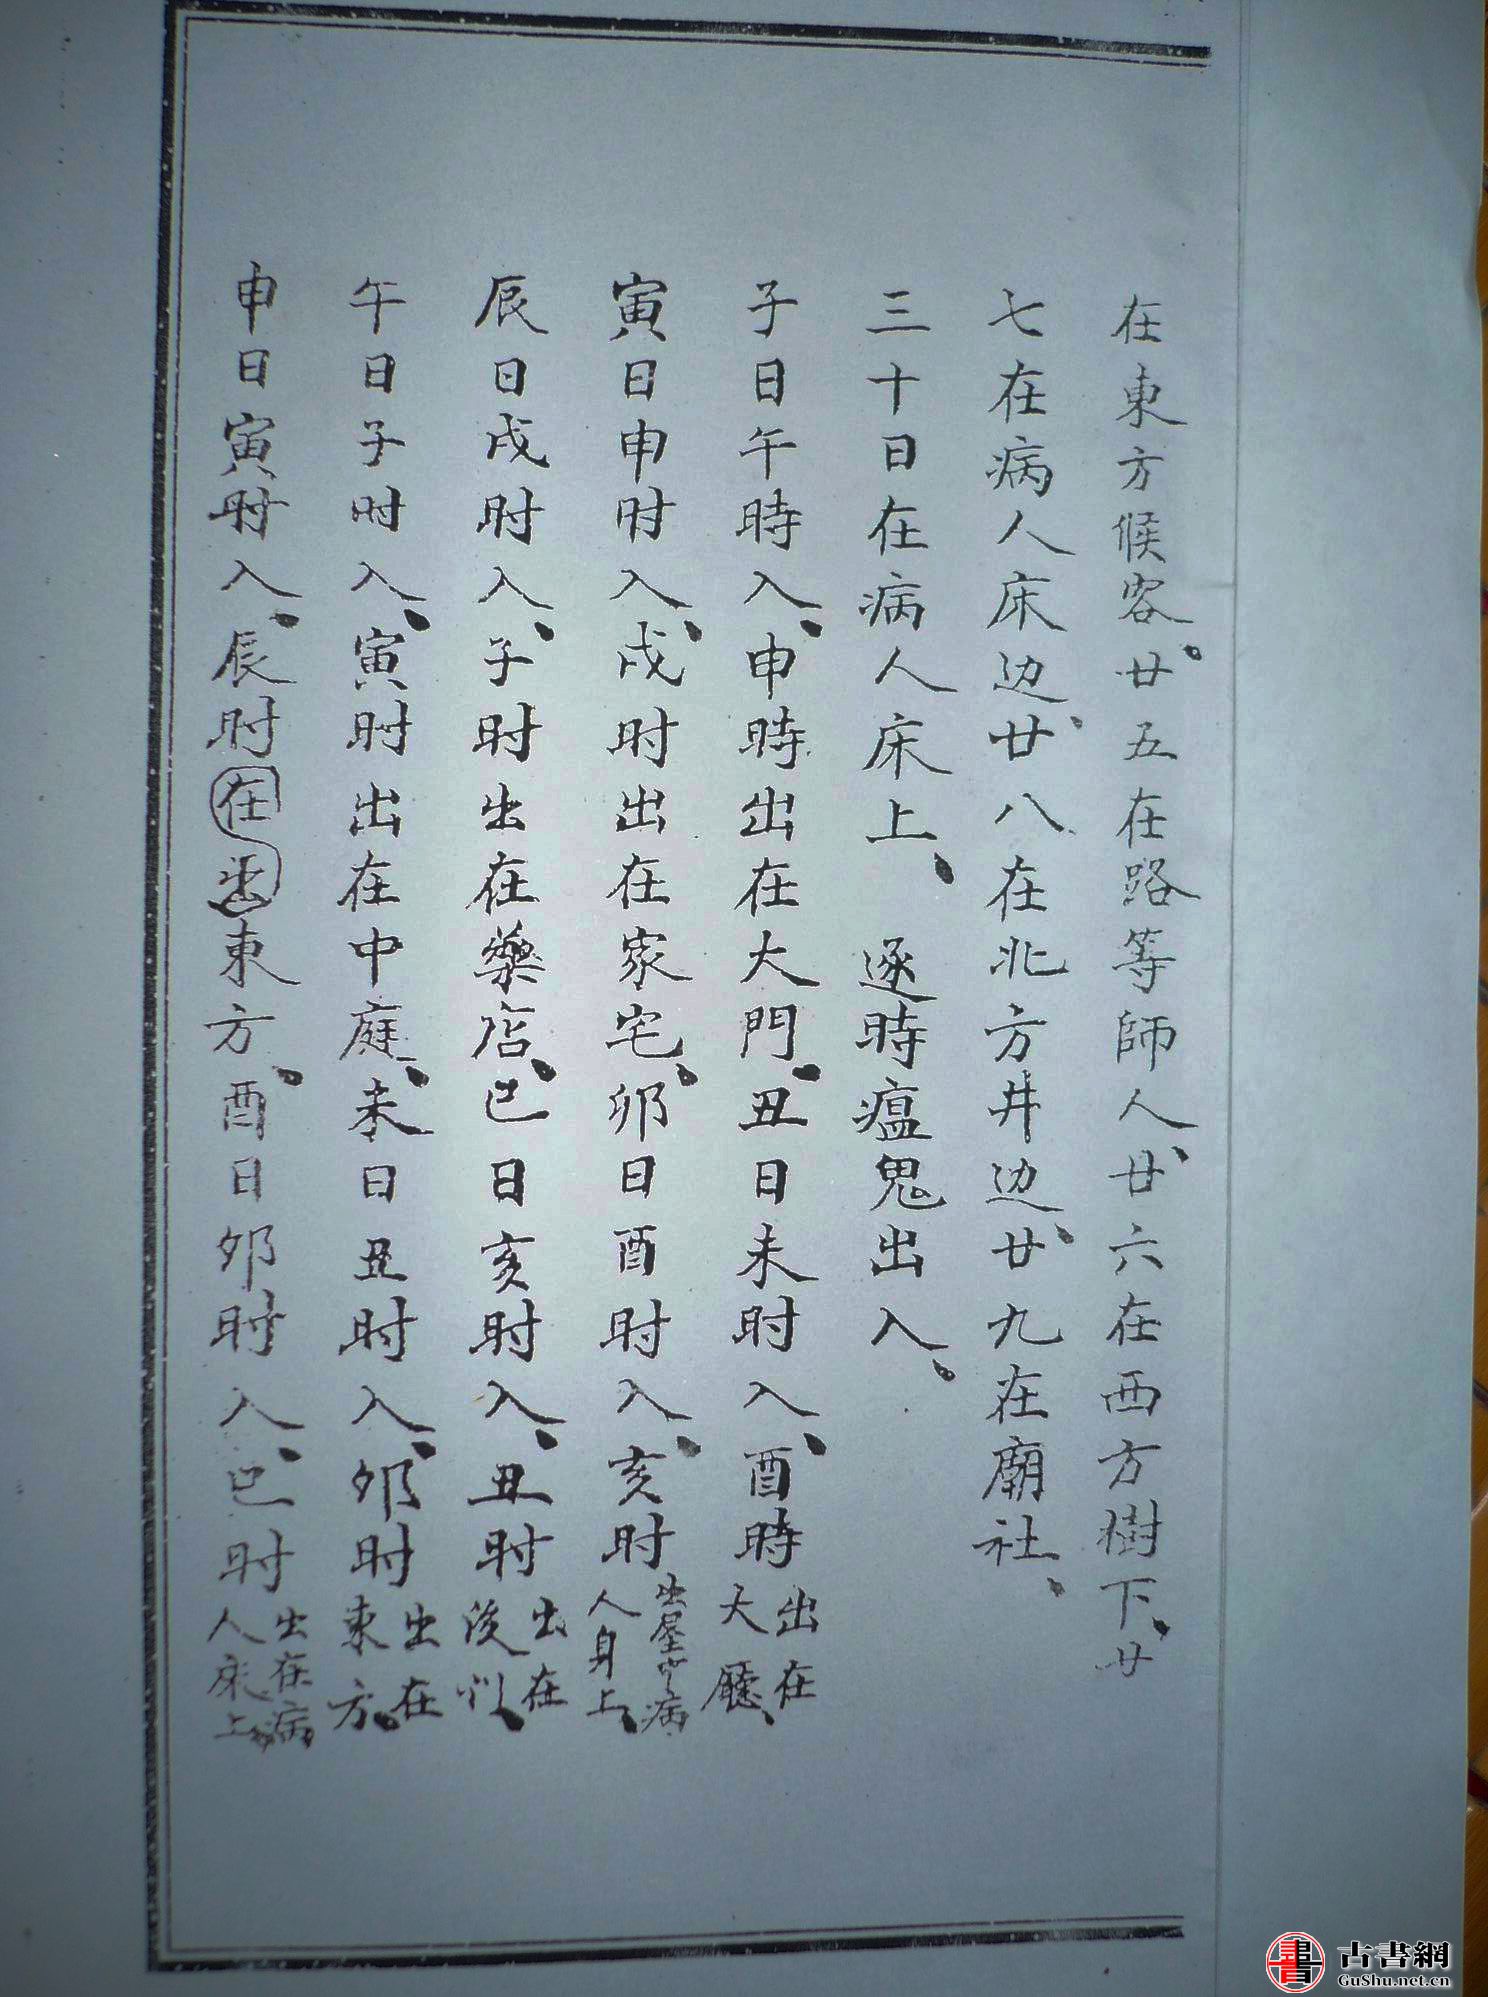 在東方候客、廿五在路等師人、廿六在西方樹下、廿
七在病人床边、廿八在北方井边、廿九在廟社、
三十日在病人床上、 逐時瘟鬼出入、
子日午時入、申時出在大門、丑日未时入、酉時出在大廳、
寅日申时入、戍时出在家宅、卯日酉时入、亥时出屋中病人身上、
辰日戍时入、子时出在藥店、巳日亥时入、丑时出在後
午日子时入、寅时出在中庭、未日丑时入、卯时出在東方、
申日寅时入、辰时在出東方、酉日卯时入、巳时出在病人床上
古書網
GuShu.net.cn